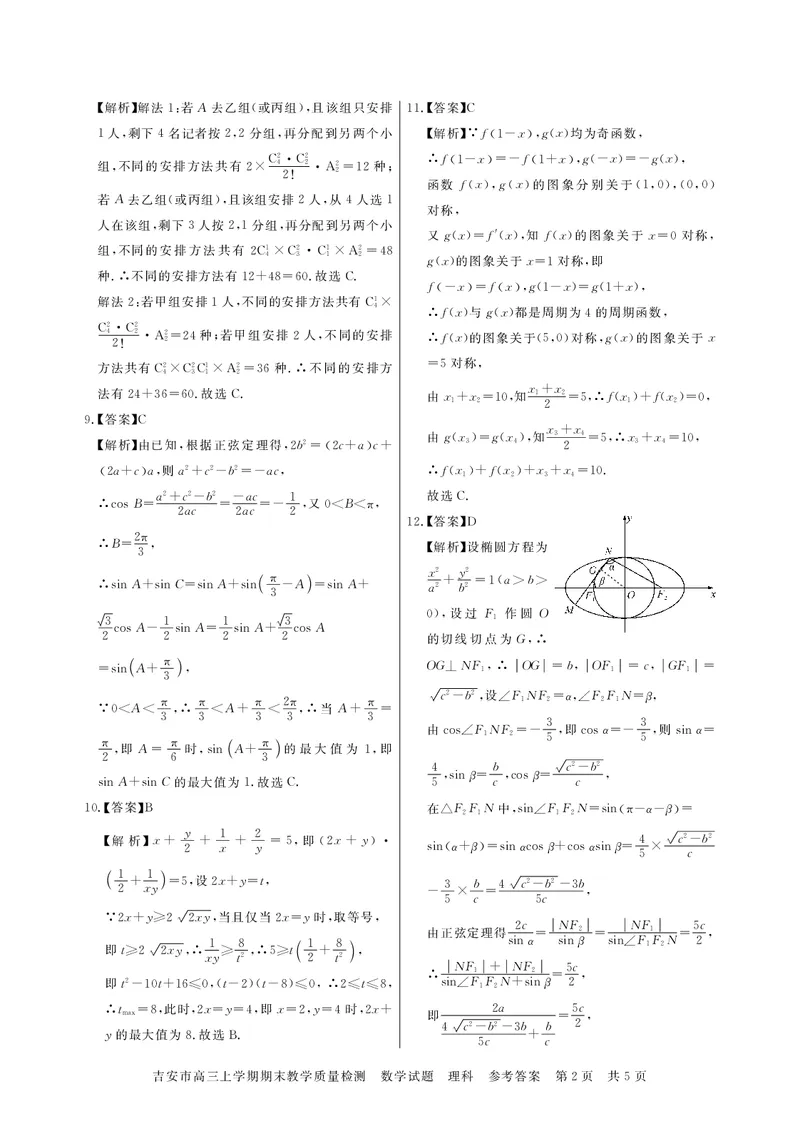 【解析】解法 1:若 A 去乙组(或丙组),且该组只安排
1人,剩下 4 名记者按 2,2 分组,再分配到另两个小
组,不同的安排方法共有 2×\frac{C_4^2·C_2^2}{2!}·A_2^2=12 种;
若 A 去乙组(或丙组),且该组安排 2 人,从 4 人选 1
人在该组,剩下 3 人按 2,1 分组,再分配到另两个小
组,不同的安排方法共有 2C_4^1×C_3^2·C_1^1×A_2^2=48
种.∴不同的安排方法有 12+48=60.故选 C.
解法 2:若甲组安排 1 人,不同的安排方法共有 C_4^1×
\frac{C_4^2·C_2^2}{2!}·A_2^2=24 种;若甲组安排 2 人,不同的安排
方法共有 C_4^2×C_3^2C_1^1×A_2^2=36 种.∴不同的安排方
法有 24+36=60.故选 C.
9.【答案】C
【解析】由已知,根据正弦定理得,2b²=(2c+a)c+
(2a+c)a,则 a²+c²-b²=-ac,
∴cos B=\frac{a²+c²-b²}{2ac}=\frac{-ac}{2ac}=-\frac{1}{2},又 0<B<π,
∴B=\frac{2π}{3},
∴sin A+sin C=sin A+sin(\frac{π}{3}-A)=sin A+
\frac{√3}{2}cos A-\frac{1}{2}sin A=\frac{1}{2}sin A+\frac{√3}{2}cos A
=sin(A+\frac{π}{3}),
∵0<A<\frac{π}{3},∴\frac{π}{3}<A+\frac{π}{3}<\frac{2π}{3},∴当 A+\frac{π}{3}=
\frac{π}{2},即 A=\frac{π}{6}时,sin(A+\frac{π}{3})的最大值为 1,即
sin A+sin C 的最大值为 1.故选 C.
10.【答案】B
【解析】x+\frac{y}{2}+\frac{1}{x}+\frac{2}{y}=5,即(2x+y)·
(\frac{1}{2}+\frac{1}{xy})=5,设 2x+y=t,
∵2x+y≥2√{2xy},当且仅当 2x=y 时,取等号,
即 t≥2√{2xy},∴\frac{1}{xy}≥\frac{8}{t²},∴5≥t(\frac{1}{2}+\frac{8}{t²}),
即 t²-10t+16≤0,(t-2)(t-8)≤0,∴2≤t≤8,
∴t_{max}=8,此时,2x=y=4,即 x=2,y=4 时,2x+
y 的最大值为 8.故选 B.
11.【答案】C
【解析】∵f(1-x),g(x)均为奇函数,
∴f(1-x)=-f(1+x),g(-x)=-g(x),
函数 f(x),g(x)的图象分别关于(1,0),(0,0)
对称,
又 g(x)=f′(x),知 f(x)的图象关于 x=0 对称,
g(x)的图象关于 x=1 对称,即
f(-x)=f(x),g(1-x)=g(1+x),
∴f(x)与 g(x)都是周期为 4 的周期函数,
∴f(x)的图象关于(5,0)对称,g(x)的图象关于 x
=5 对称,
由 x_1+x_2=10,知\frac{x_1+x_2}{2}=5,∴f(x_1)+f(x_2)=0,
由 g(x_3)=g(x_4),知\frac{x_3+x_4}{2}=5,∴x_3+x_4=10,
∴f(x_1)+f(x_2)+x_3+x_4=10.
故选 C.
12.【答案】D
【解析】设椭圆方程为
\frac{x²}{a²}+\frac{y²}{b²}=1(a>b>
0),设过 F_1 作圆 O
的切线切点为 G,∴
y
N
G
α
β
F_1
O
F_2
x
M
OG⊥NF_1,∴|OG|=b,|OF_1|=c,|GF_1|=
√{c²-b²},设∠F_1NF_2=α,∠F_2F_1N=β,
由 cos∠F_1NF_2=-\frac{3}{5},即 cos α=-\frac{3}{5},则 sin α=
\frac{4}{5},sin β=\frac{b}{c},cos β=\frac{√{c²-b²}}{c},
在△F_2F_1N 中,sin∠F_1F_2N=sin(π-α-β)=
sin(α+β)=sin αcos β+cos αsin β=\frac{4}{5}×\frac{√{c²-b²}}{c}
-\frac{3}{5}×\frac{b}{c}=\frac{4√{c²-b²}-3b}{5c},
由正弦定理得\frac{2c}{sin α}=\frac{|NF_2|}{sin β}=\frac{|NF_1|}{sin∠F_1F_2N}=\frac{5c}{2},
∴\frac{|NF_1|+|NF_2|}{sin∠F_1F_2N+sin β}=\frac{5c}{2},
即\frac{2a}{\frac{4√{c²-b²}-3b}{5c}+\frac{b}{c}}=\frac{5c}{2},
吉安市高三上学期期末教学质量检测 数学试题 理科 参考答案 第 2 页 共 5 页